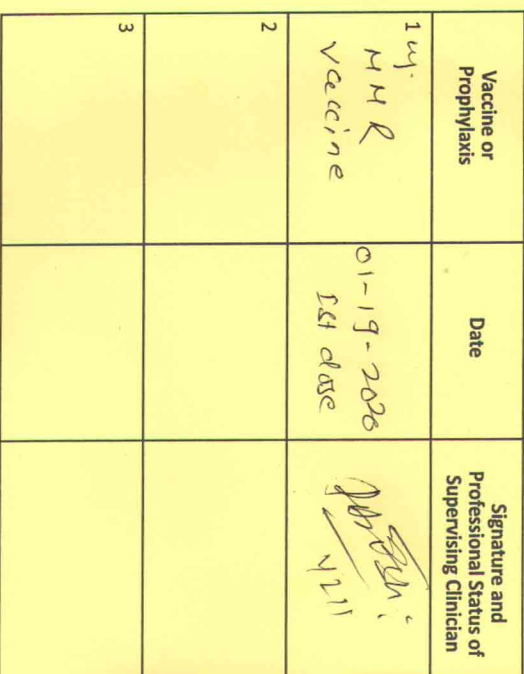 Vaccine or
Prophylaxis
Date
Signature and
Professional Status of
Supervising Clinician
1 inj.
MMR
vaccine
01-19-2020
Ist dose
4211
2
3